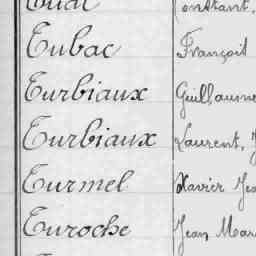 Constant,
Tubac François
Turbiaux Guillaume
Turbiaux Laurent, J
Turmel Xavier Jea
Turoche Jean Mar